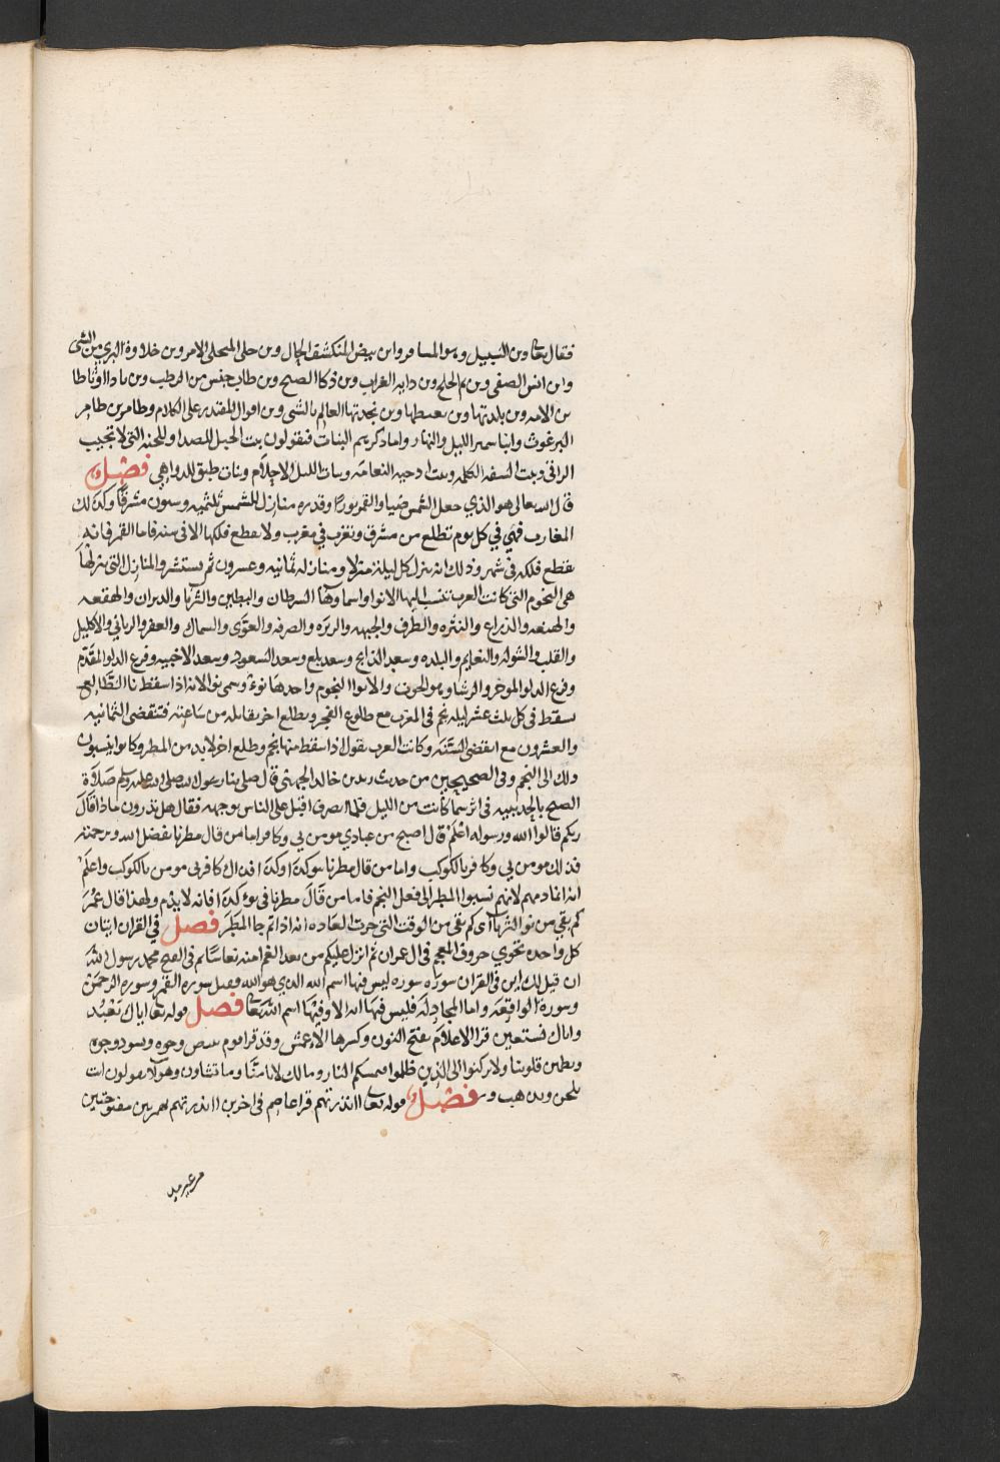 فقال تعالى وبن السبيل وهو المسافر وابن بيض المنكشف الحال وبن جلى المنجلى الامر وبن خلاوة البري من الشي
وابن انس الصفى وبن دايه الغراب وبن ذكا الصبح وبن طاب جنس من الرطب وبن
بن الامه وبن بلدتها وبن بعثطها وبن بجدتها العالم بالشى وبن اقوال المقتدر على الكلام وطامر بن طامر
البرغوث وابنا سمير الليل والنهار واما ذكر بهم البنات فيقولون بنت الجبل للصدا وللجنه التى لا تجيب
الراقى وبنت الشفه الكلمه وبنت ادحيه النعامه وبنات الليل الاحلام وبنات طبق الدواهى فصل
قال الله تعالى هو الذي جعل الشمس ضيا والقمر نورا وقدره منازل للشمس ثلثميه وستون مشرقا وكذلك
المغارب فهى في كل يوم تطلع من مشرق وتغرب في مغرب ولا تقطع فلكها الا فى سنه فاما القمر فانه
يقطع فلكه فى شهر وذلك انه ينزل كل ليله منزلا ومنازله ثمانيه وعشرون ثم يستتر والمنازل التى ينزلها
هى النجوم التى كانت العرب تنسب اليها الانوا واسماوها السرطان والبطين والثريا والدبران والهقعه
والهنعه والذراع والنثره والطرف والجبهه والزبره والصرفه والعوى والسماك والغفر والزبانى والاكليل
والقلب والشوله والنعايم والبلده وسعد الذابح وسعد بلع وسعد السعود وسعد الاخبيه وفرع الدلو المقدم
وفرع الدلو الموخر والرشا وهو الحوت والانوا النجوم واحدها نوء وسمى نوا لانه اذا سقط نا الطالع
يسقط فى كل ثلث عشر ليله نجم فى المغرب مع طلوع الفجر ويطلع اخر يقابله من ساعته فتنقضى الثمانيه
والعشرون مع انقضى السنه وكانت العرب تقول اذا سقط منها نجم وطلع اخر لابد من المطر وكانوا ينسبون
ذلك الى النجم وفى الصحيحين من حديث زيد بن خالد الجهنى قال صلى بنا رسول الله صلى الله عليه وسلم صلاة
الصبح بالحديبيه فى اثر سما كانت من الليل فلما انصرف اقبل على الناس بوجهه فقال هل تدرون ماذا قال
ربكم قالوا الله ورسوله اعلم قال اصبح من عبادي مومن بي وكافر اما من قال مطرنا بفضل الله وبرحمته
فذلك مومن بي وكافر بالكوكب واما من قال مطرنا بنو كذا وكذا فذاك كافر بى مومن بالكوكب واعلم
انه انما ذمهم لانهم نسبوا المطر الى فعل النجم فاما من قال مطرنا فى نوء كذا فانه لا يذم ولهذا قال عمر
كم بقي من نو الثريا اى كم بقى من الوقت التى جرت العاده انه اذا تم جا المطر فصل في القران ايتان
كل واحده تحوي حروف المعجم فى ال عمران ثم انزل عليكم من بعد الغم امنه نعاسا ثم فى الفتح محمد رسول الله
ان قيل لك اين فى القران سوره سوره ليس فيها اسم الله الذي هو الله فقل سوره القمر وسوره الرحمن
وسورة الواقعه واما المجادله فليس فيها ايه الا وفيها اسم الله تعالى فصل قوله تعالى اياك نعبد
واياك نستعين قرا الاعلام بفتح النون وكسرها الاعمش وقد قرا قوم تبيض وجوه وتسود وجوه
وتطمين قلوبنا ولا تركنوا الى الذين ظلموا فتمسكم النار ومالك لا تامنا وما تشاون وهولا يقولون انت
تلحن وتذهب و فصل قوله تعالى اانذرتهم قرا عاصم فى اخرين اانذرتهم بهمزتين مفتوحتين